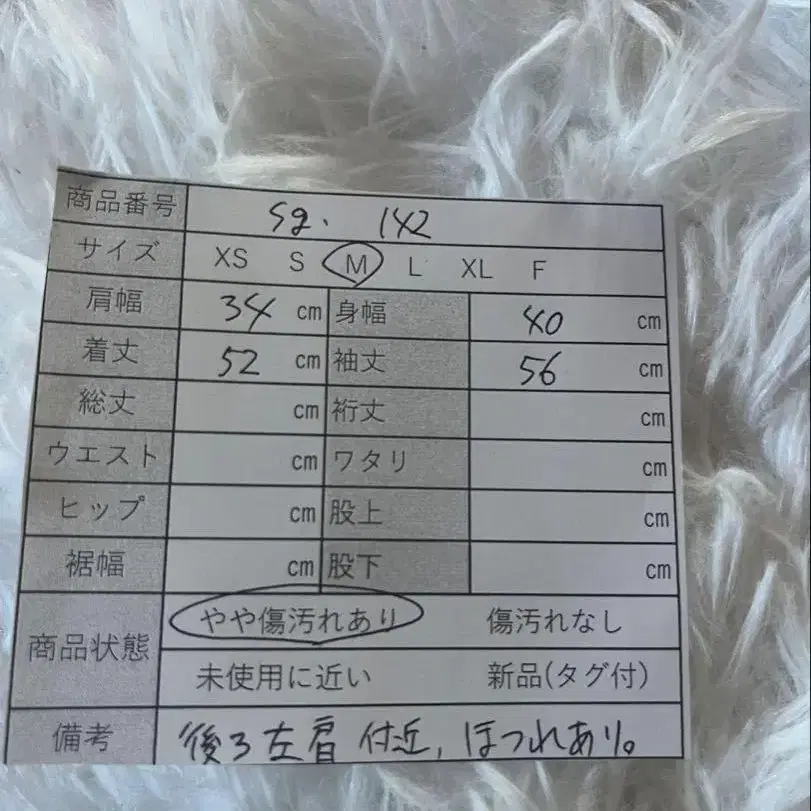 商品番号 sg. 142
サイズ XS S M L XL F
肩幅 34 cm 身幅 40 cm
着丈 52 cm 袖丈 56 cm
総丈 cm 裄丈 cm
ウエスト cm ワタリ cm
ヒップ cm 股上 cm
裾幅 cm 股下 cm
商品状態 やや傷汚れあり 傷汚れなし
未使用に近い 新品(タグ付)
備考 後ろ左肩付近, ほつれあり。